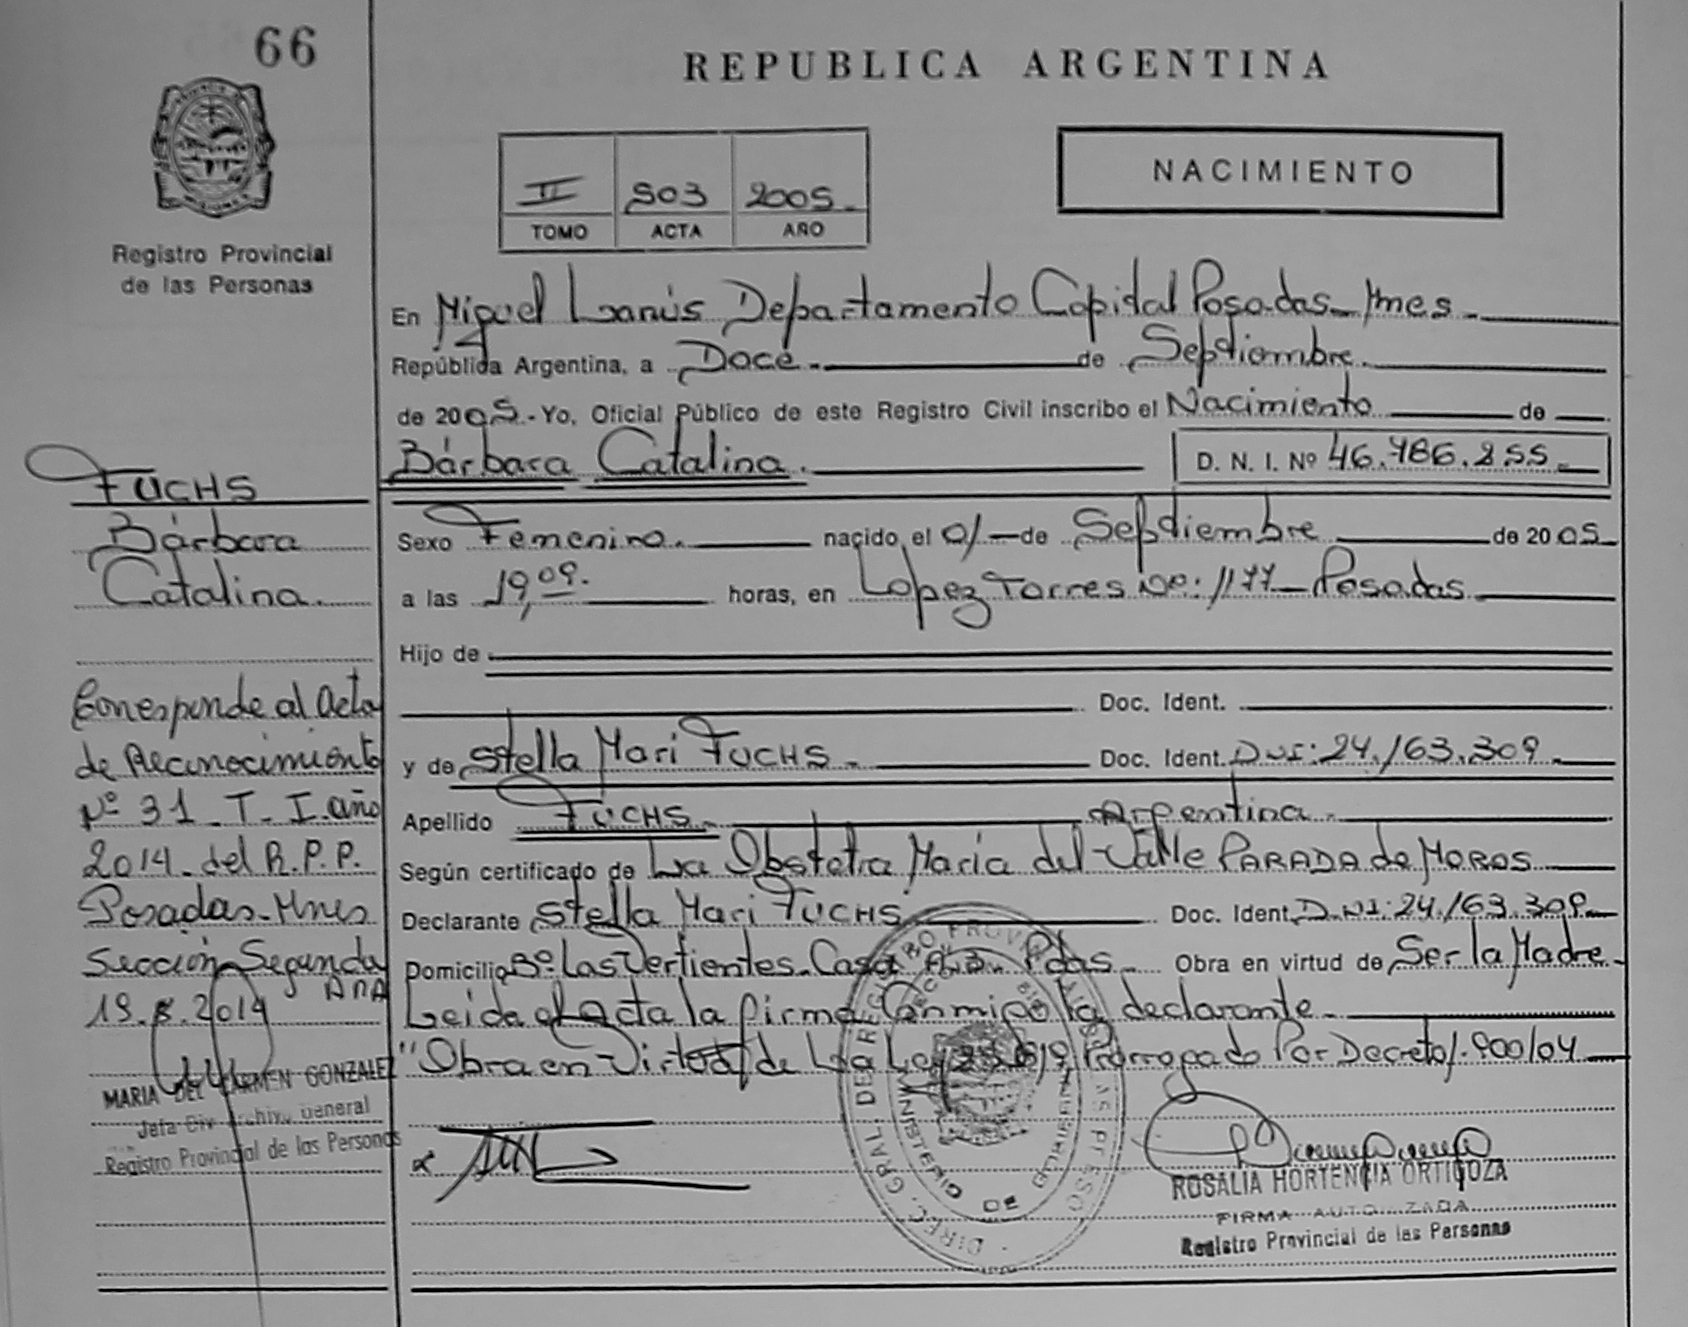 66
REPUBLICA ARGENTINA
II 503 2005
TOMO ACTA AÑO
NACIMIENTO
Registro Provincial
de las Personas
En Miguel Lanús Departamento Capital Posadas Mnes
República Argentina, a Doce de Septiembre
de 2005 - Yo, Oficial Público de este Registro Civil inscribo el Nacimiento de
Bárbara Catalina. D. N. I. Nº 46.786.255
Sexo Femenino. nacido el 01 de Septiembre de 2005
a las 19,09. horas, en Lopez Torres Nº: 1177 Posadas
Hijo de
Doc. Ident.
y de Stella Mari FUCHS. Doc. Ident. D.N.I: 24.163.309
Apellido FUCHS Argentina.
Según certificado de La Obstetra Maria del Valle PARADA de MOROS
Declarante Stella Mari FUCHS Doc. Ident. D.N.I: 24.163.309
Domicilio Bº Las Vertientes Casa Pdas Obra en virtud de Ser la Madre
Leida el Acta la firma Conmigo la declarante
"Obra en Virtud de La Ley Prorrogado Por Decreto 900/04
FUCHS
Bárbara
Catalina.
Corresponde al Acta
de Reconocimiento
Nº 31 T. I. año
2014 del R.P.P.
Posadas - Mnes
Sección Segunda
19.8.2014
MARIA DEL CARMEN GONZALEZ
Jefa Div Archivo General
Registro Provincial de las Personas
ROSALIA HORTENCIA ORTIGOZA
FIRMA AUTORIZADA
Registro Provincial de las Personas